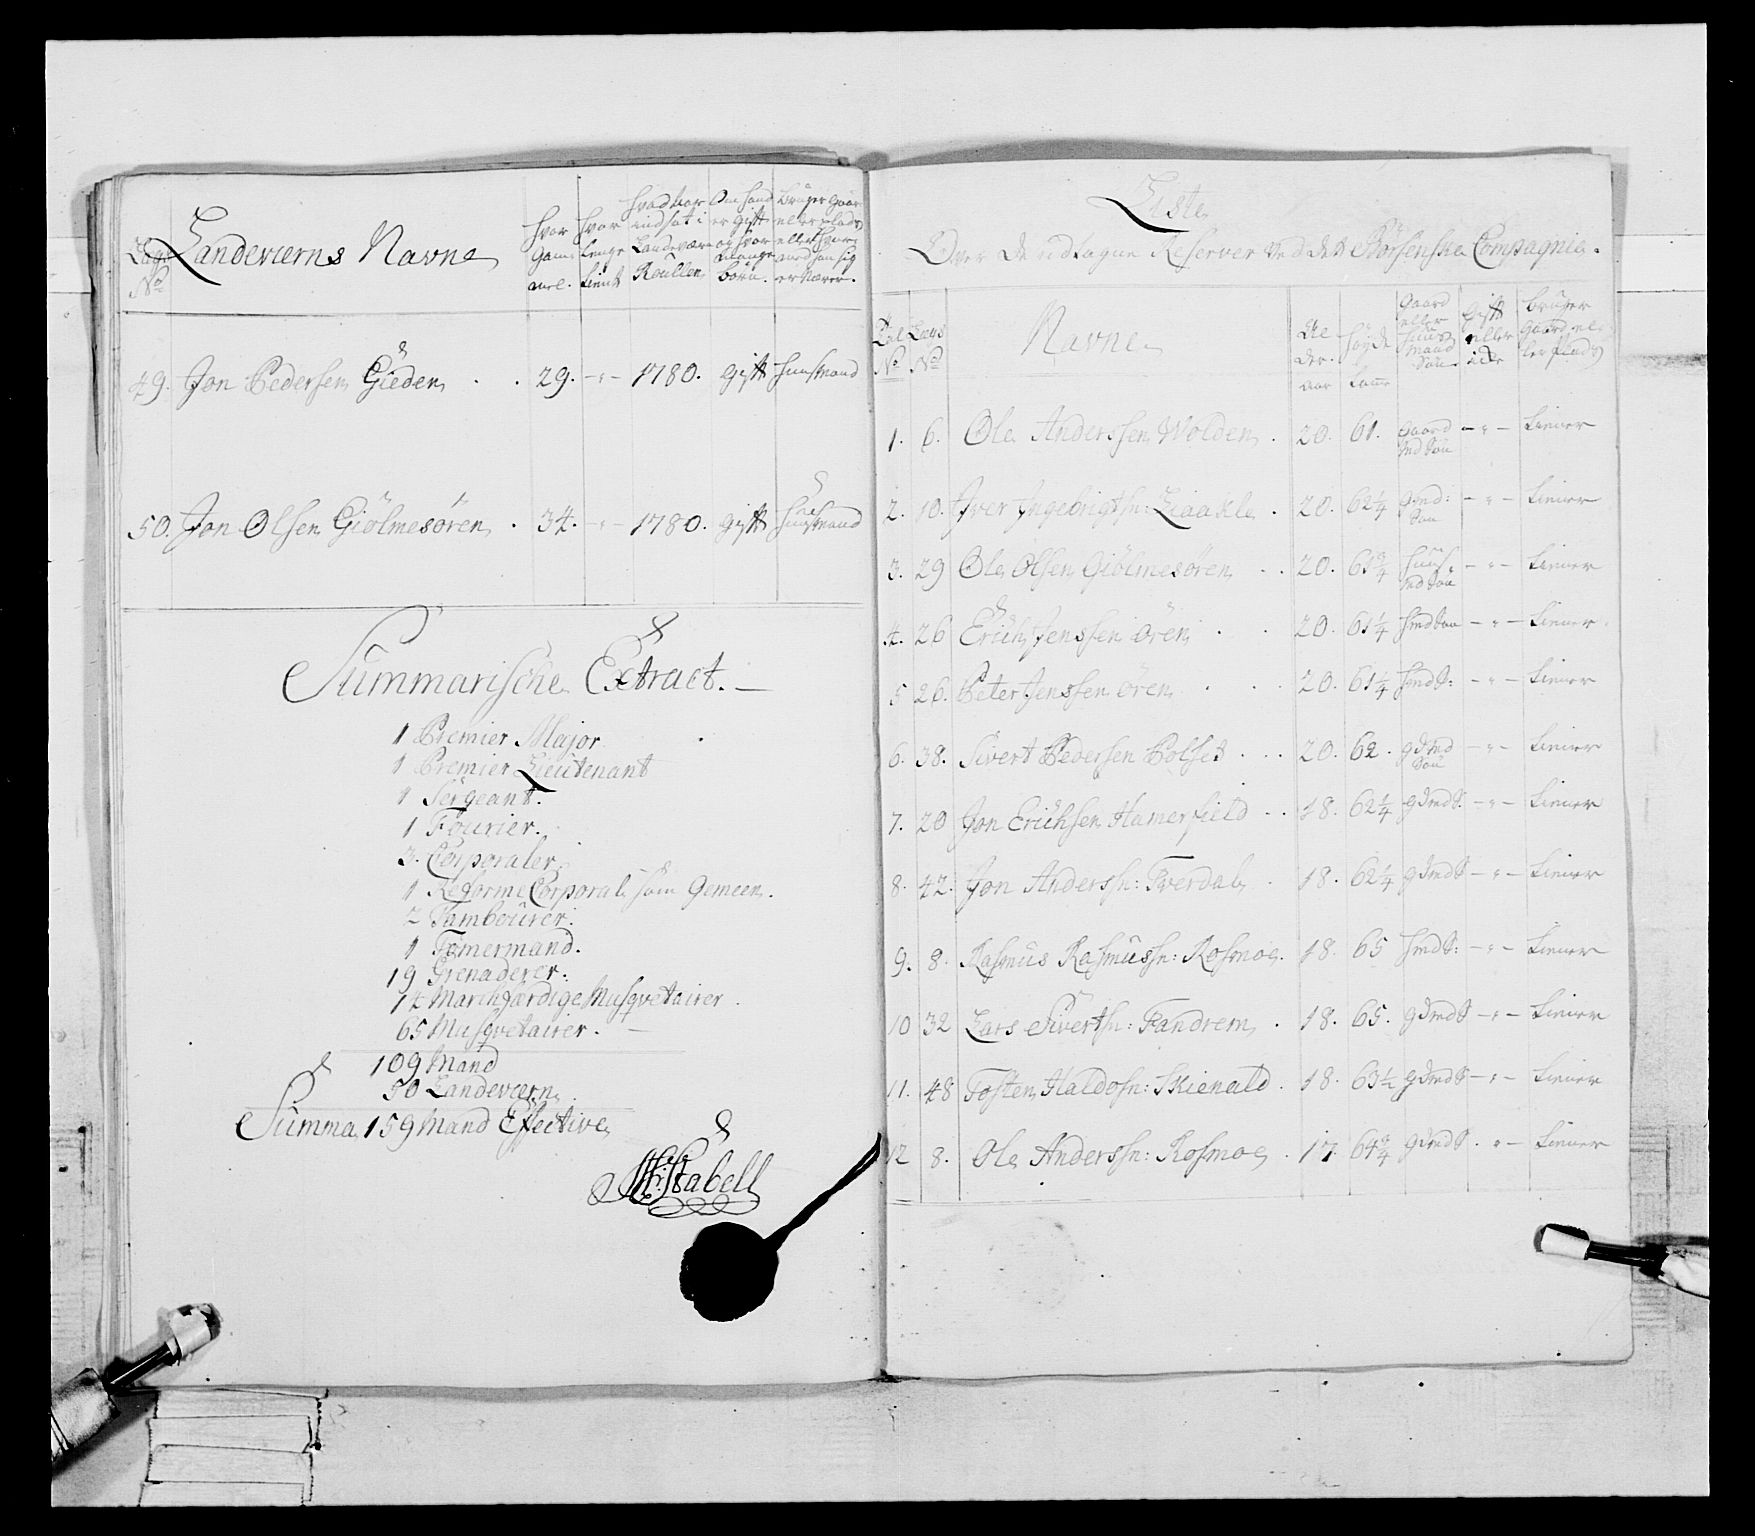 Lægs No
Landeværns Navne
hvor Gammel.
hvor lenge tient
hvad aar indsat i Landeværn Roullen
Om hand er Gift og hvor mange børn.
Bruger Gaar eller plads eller hvor med han sig ernærer.
49. Jon Pedersen Gieden . . 29. - " - 1780. Gift huusmand
50. Jon Olsen Giölmesören . 34. - " - 1780. Gift huusmand
Summarische Extract. —
1 Premier Major
1 Premier Lieutenant
1 Sergeant.
1 Fourier.
3. Corporaler
1 Reforme Corporal som Gemeen.
2 Tambourer.
1 Tømermand.
19 Grenaderer.
14 Marchfærdige Musqvetairer.
65 Musqvetairer. —
109 Mand
50 Landeværn
Summa 159 Mand Effective
Stabell
Liste
Over de udtagne Reserver ved det Børsenske Compagnie.
Tal No
Lægs No
Navne
Alder. aar
høyde tomr
Gaard eller Huusmand Søn.
Gift eller icke
bruger Gaard eller plads
1. 6. Ole Anderssen Wolden . 20. 61. Gaard Md Søn - " - tiener
2. 10. Iver Ingebrigtsn: Liaakle . 20. 62 1/4 Gmd: Søn - " - tiener
3. 29 Ole Olsen Giölmesören . . 20. 61 3/4 huus Md Søn - " - tiener
4. 26 Erich Jenssen ören . . 20. 61 1/4 hmd Søn - " - tiener.
5 26. Peter Jenssen ören . . . 20. 61 1/4 hmd S: - " - tiener
6. 38. Sivert Pedersen Bolset . . . 20. 62. gdmd Søn - " - tiener
7. 20 Jon Erichsen Hamerfield . . 18. 62 1/4 gdmd S. - " - tiener
8. 42. Jon Anderssn: Tverdal . 18. 62 1/4 gdmd S - " - tiener
9. 8. Rasmus Rasmussn: Rosmoe. 18. 65 hmd S: - " - tiener
10 32 Lars Sivertsn: Fandrem . 18. 65. gdmd S - " - tiener
11. 48 Tosten Haldosn: Skienald . 18. 63 1/2 gdmd S - " - tiener
12 8. Ole Anderssn: Rosmoe . 17. 64 3/4 gdmd S . " - tiener